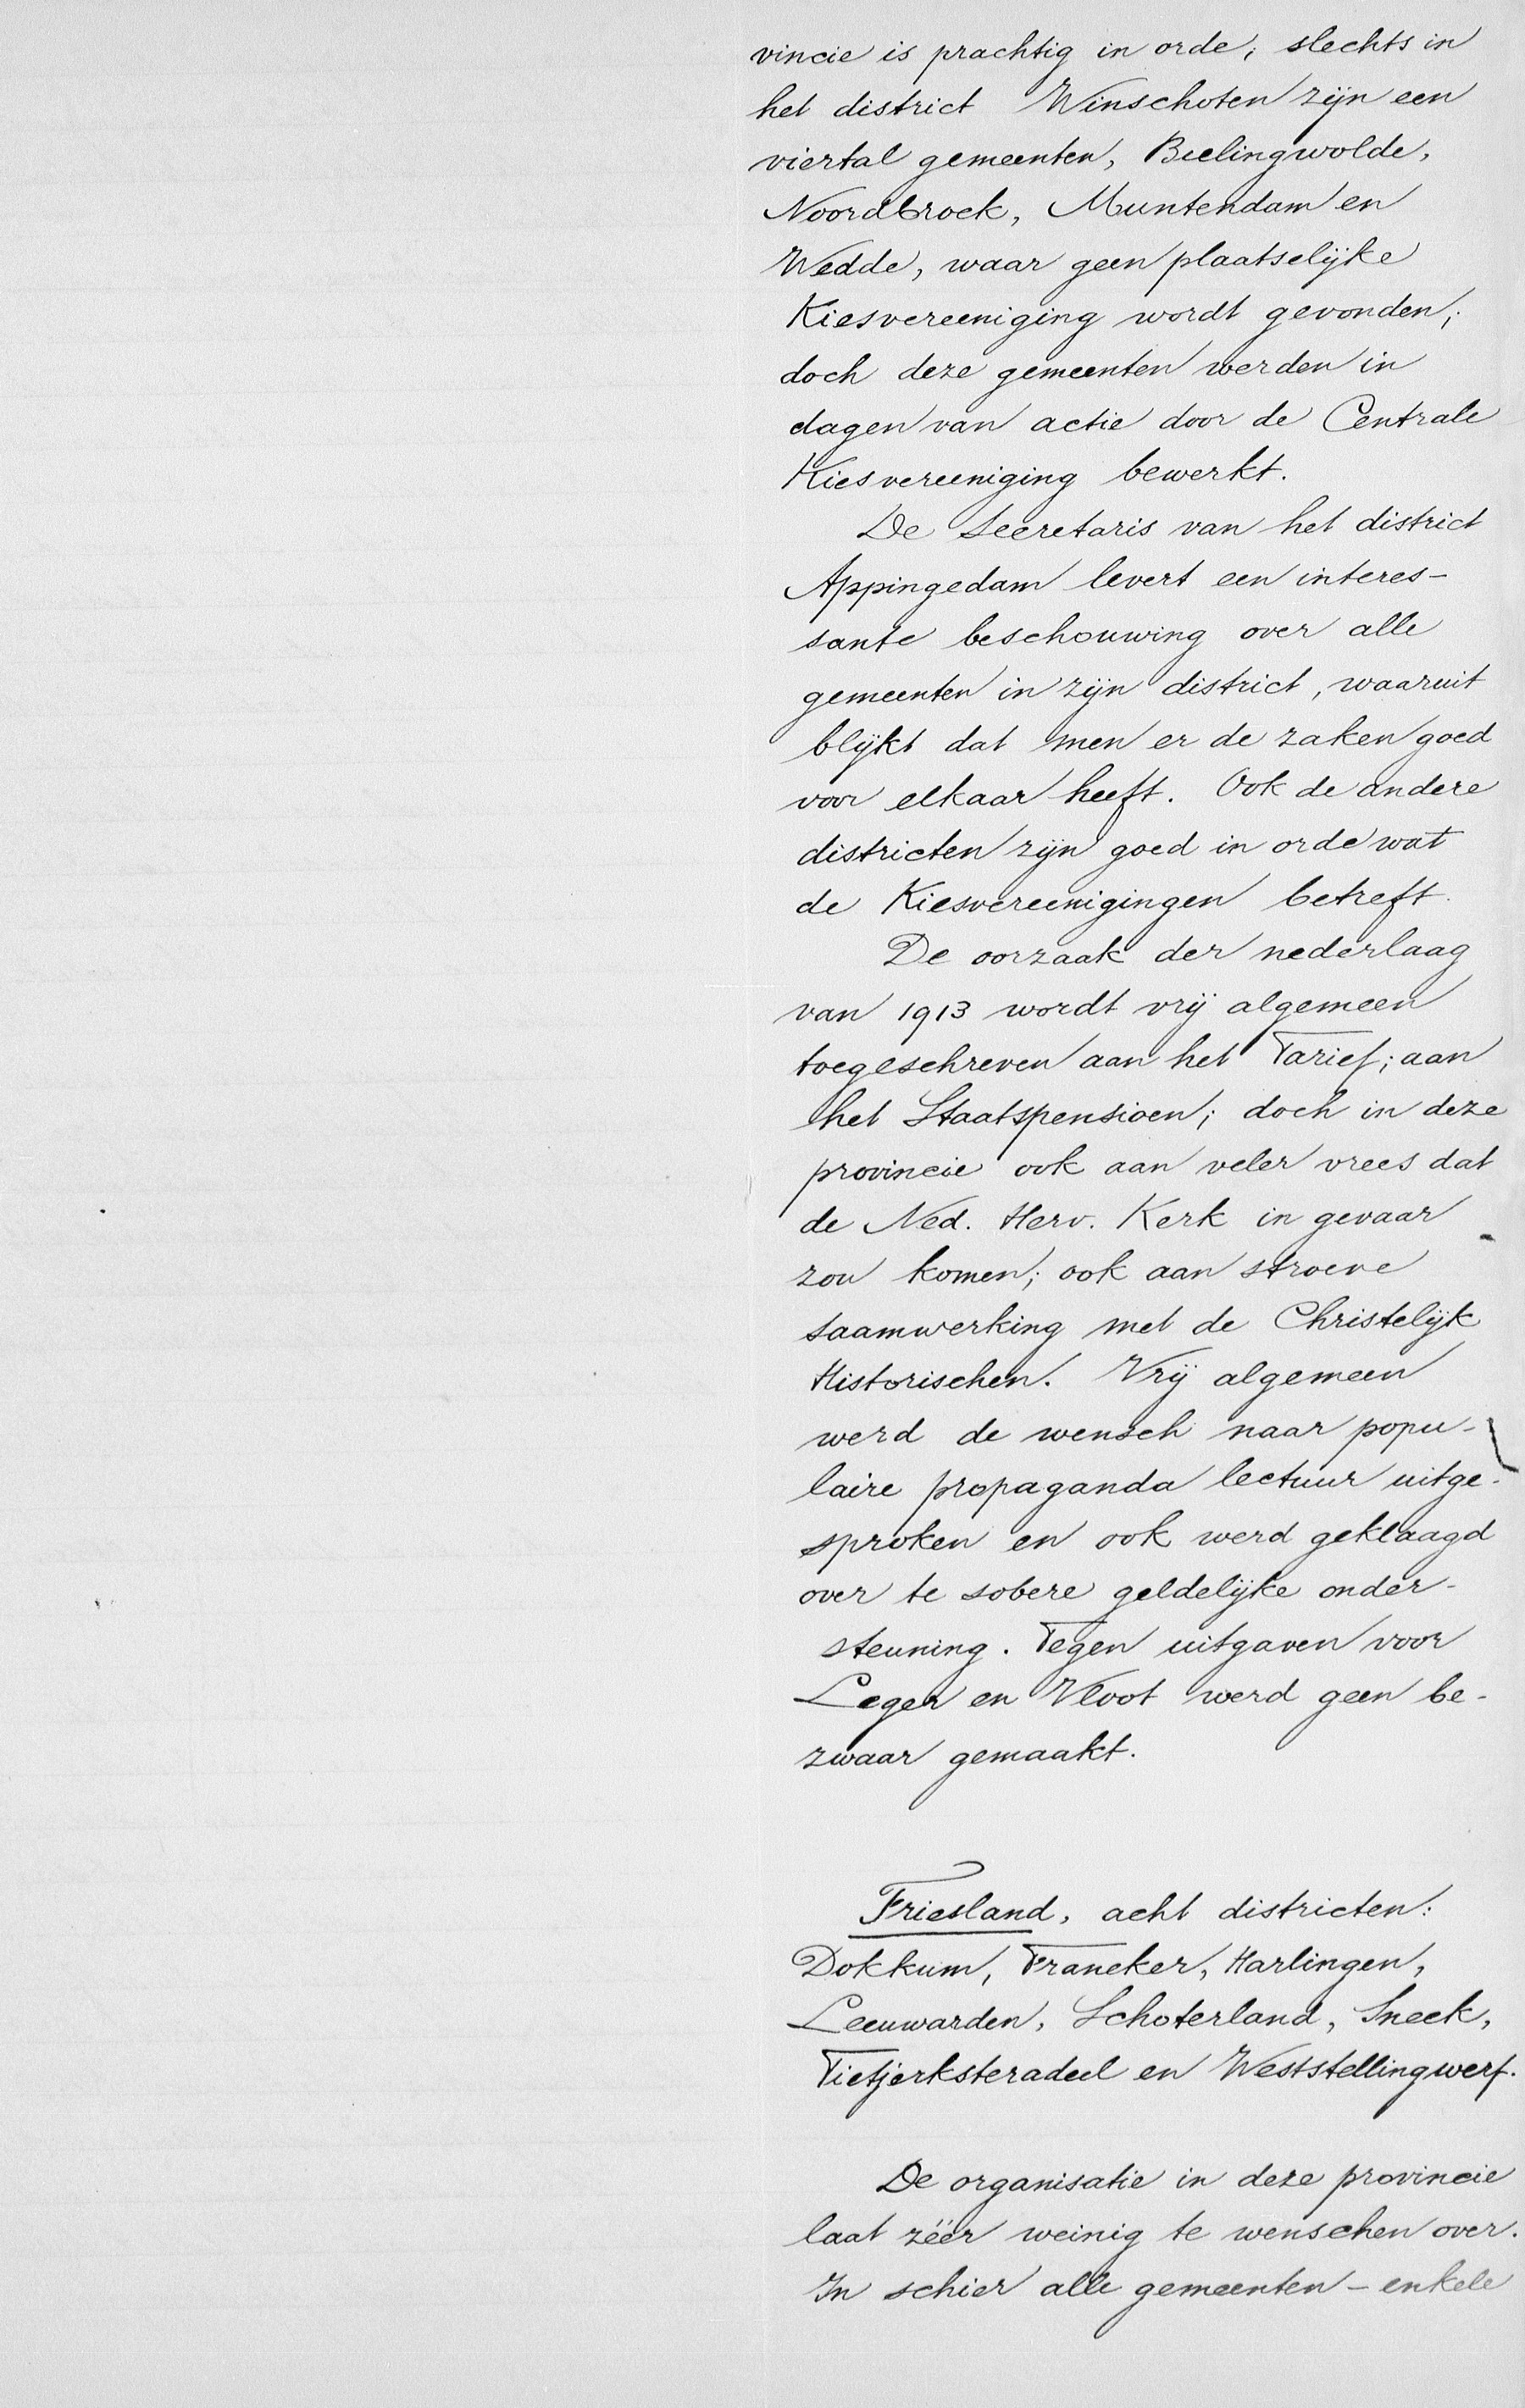 vincie is prachtig in orde; slechts in
het district Winschoten zijn een
viertal gemeenten, Beelingwolde,
Noordbroek, Muntendam en
Wedde, waar geen plaatselijke
Kiesvereeniging wordt gevonden;
doch deze gemeenten werden in
dagen van actie door de Centrale
Kiesvereeniging bewerkt.
De Secretaris van het district
Appingedam levert een interes-
sante beschouwing over alle
gemeenten in zijn district, waaruit
blijkt dat men er de zaken goed
voor elkaar heeft. Ook de andere
districten zijn goed in orde wat
de Kiesvereenigingen betreft.
De oorzaak der nederlaag
van 1913 wordt vrij algemeen
toegeschreven aan het Tarief; aan
het Staatspensioen; doch in deze
provincie ook aan veler vrees dat
de Ned. Herv. Kerk in gevaar
zou komen; ook aan stroeve
saamwerking met de Christelijk
Historischen. Vrij algemeen
werd de wensch naar popu-
laire propaganda lectuur uitge-
sproken en ook werd geklaagd
over te sobere geldelijke onder-
steuning. Tegen uitgaven voor
Leger en Vloot werd geen be-
zwaar gemaakt.
Friesland, acht districten:
Dokkum, Franeker, Harlingen,
Leeuwarden, Schoterland, Sneek,
Tietjerksteradeel en Weststellingwerf.
De organisatie in deze provincie
laat zéér weinig te wenschen over.
In schier alle gemeenten - enkele